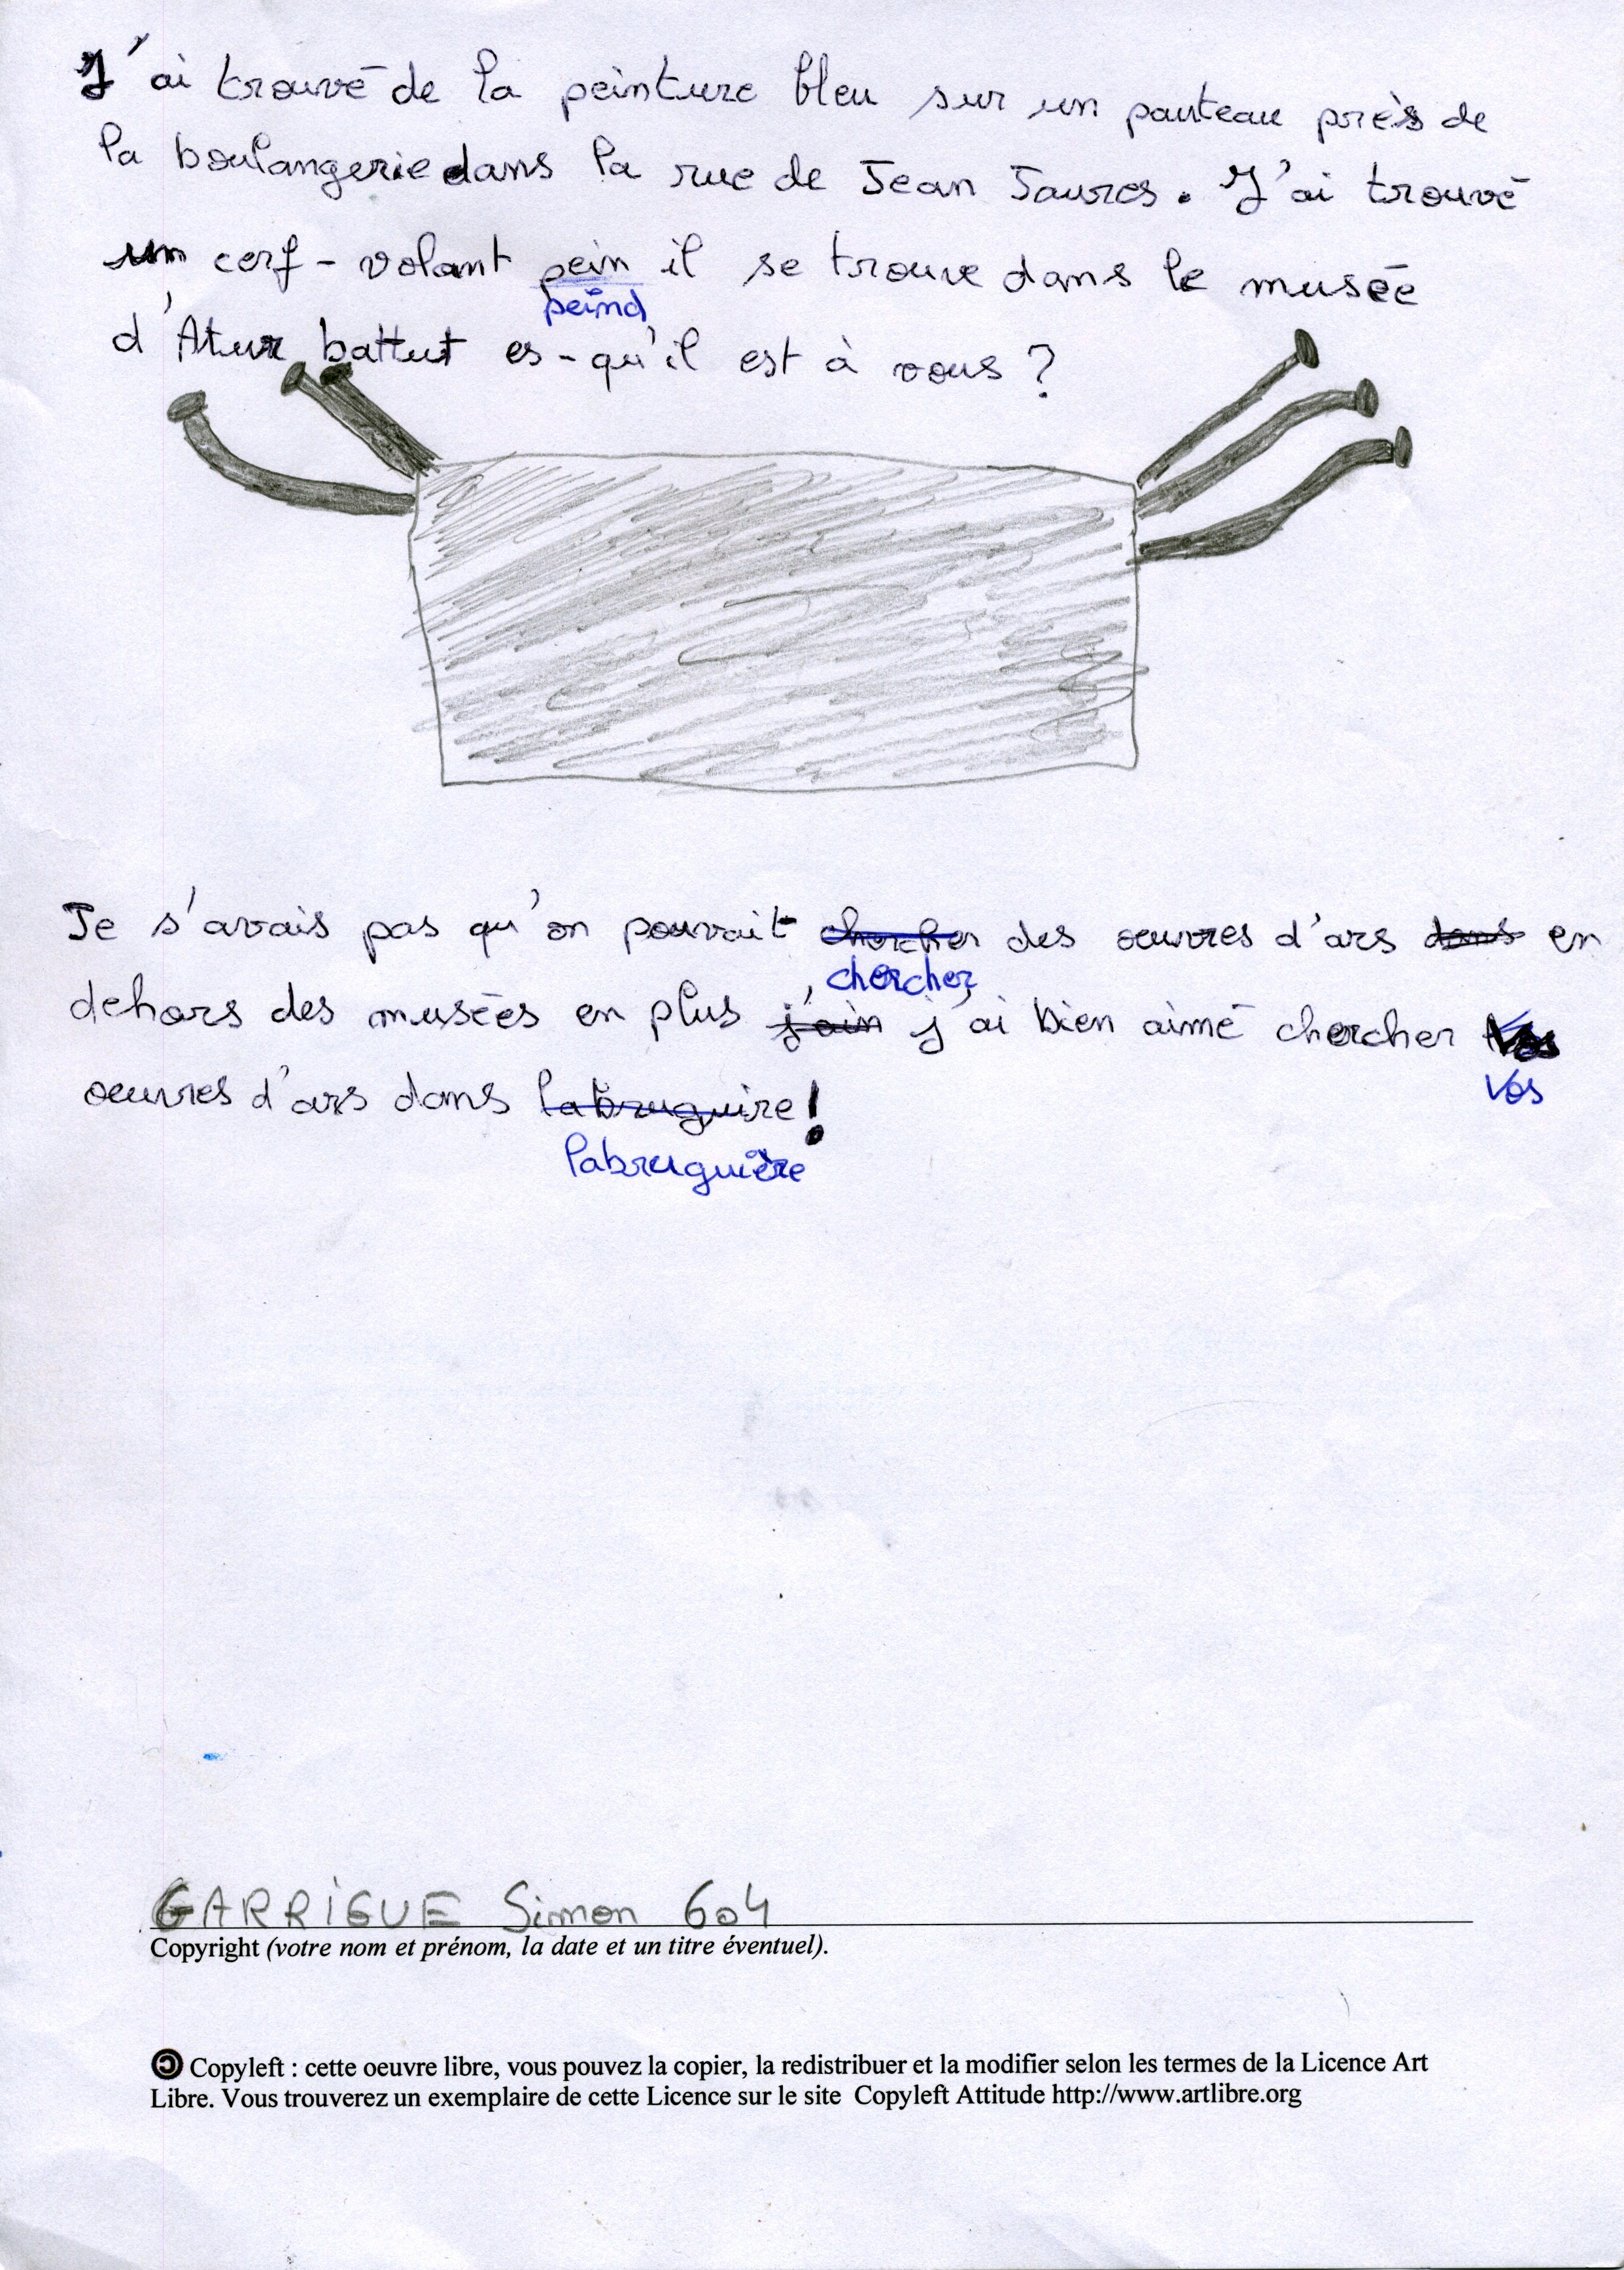 J'ai trouvé de la peinture bleu sur un pauteau près de
la boulangerie dans la rue de Jean Jaures. J'ai trouvé
un cerf-volant pein il se trouve dans le musée
peind
d'Atur battut es-qu'il est à vous ?
Je s'avais pas qu'on pouvait chercher des œuvres d'ars dans en
chercher
dehors des musées en plus j'ain j'ai bien aimé chercher
Vos
œuvres d'ars dans labruguire !
labruguière
GARRIGUE Simon 604
Copyright (votre nom et prénom, la date et un titre éventuel).
Copyleft : cette oeuvre libre, vous pouvez la copier, la redistribuer et la modifier selon les termes de la Licence Art
Libre. Vous trouverez un exemplaire de cette Licence sur le site Copyleft Attitude http://www.artlibre.org